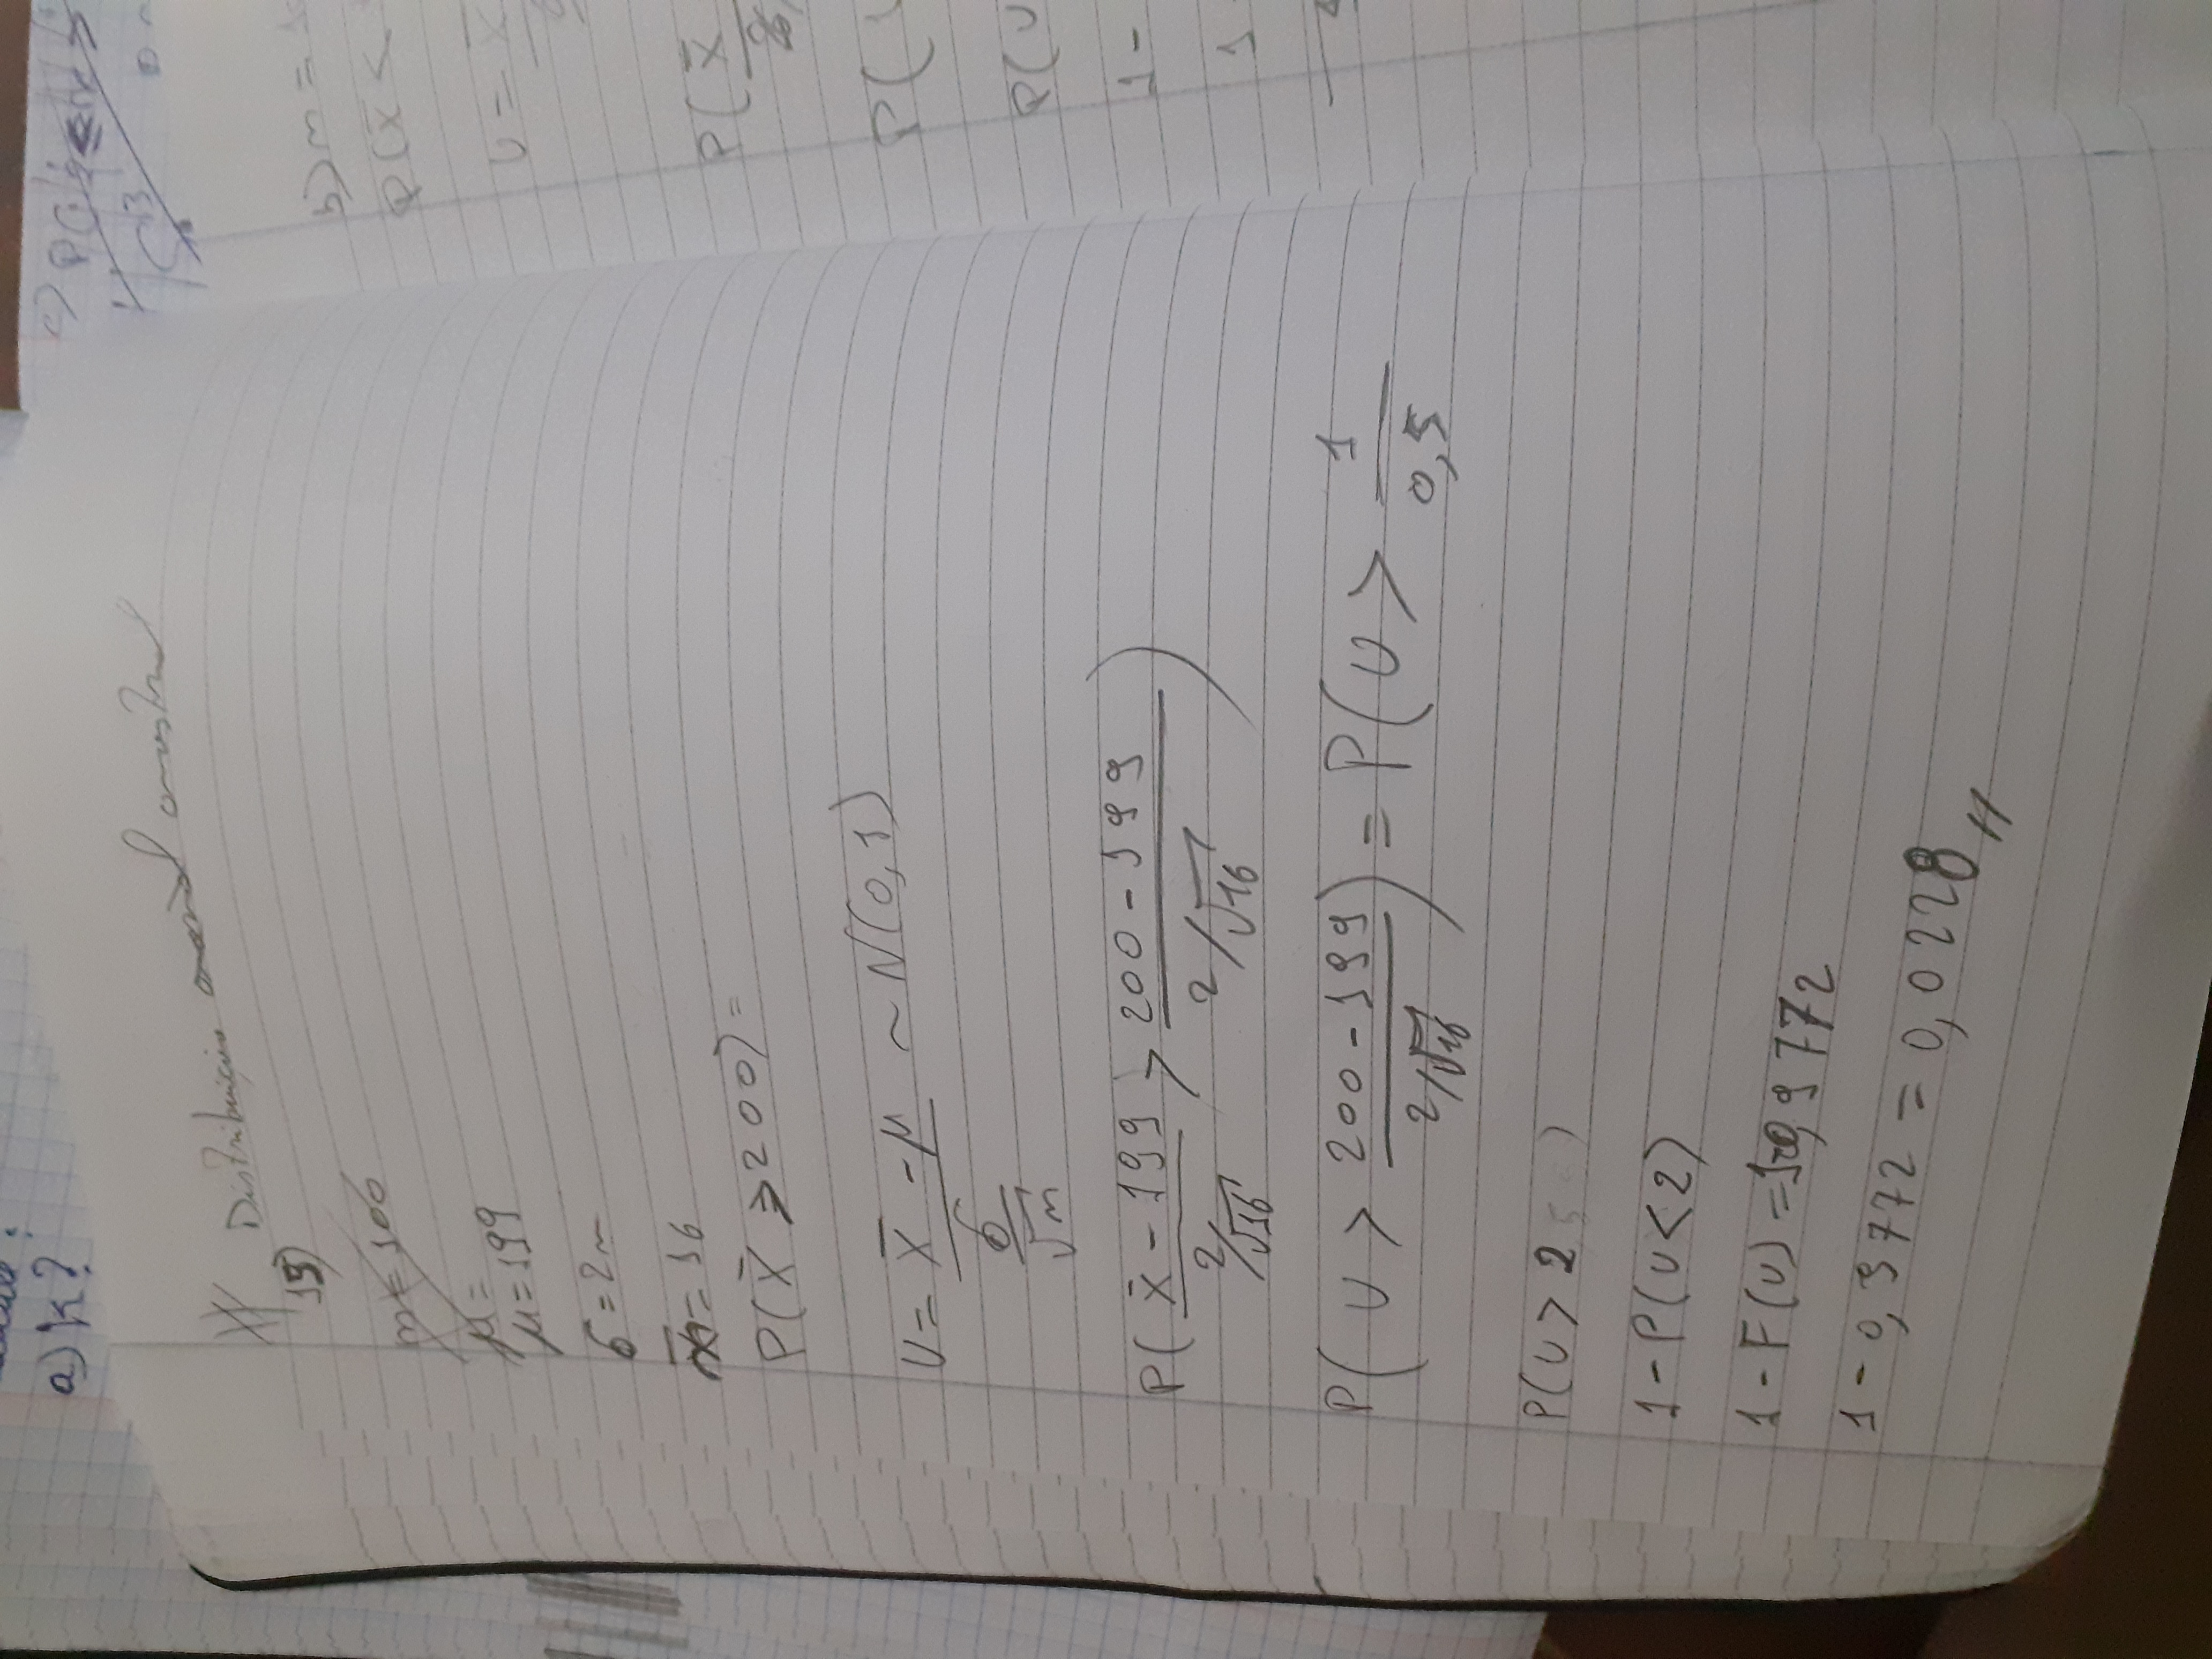 a) k?
Distribuição amostral
15)
n = 100
μ =
μ = 199
σ = 2m
n = 16
P(x̄ ⩾ 200) =
U = (x̄ - μ) / (σ/√n) ~ N(0,1)
P( (x̄ - 199) / (2/√16) > (200 - 199) / (2/√16) )
P( U > (200 - 199) / (2/√16) ) = P( U > 1 / 0,5
P(U > 2 )
1 - P(U < 2)
1 - F(U) = 1-0,9772
1 - 0,9772 = 0,0228 //
c) P(
b) n =
P(x̄ <
U = x̄
P( x̄
P(
P(U
1 -
1